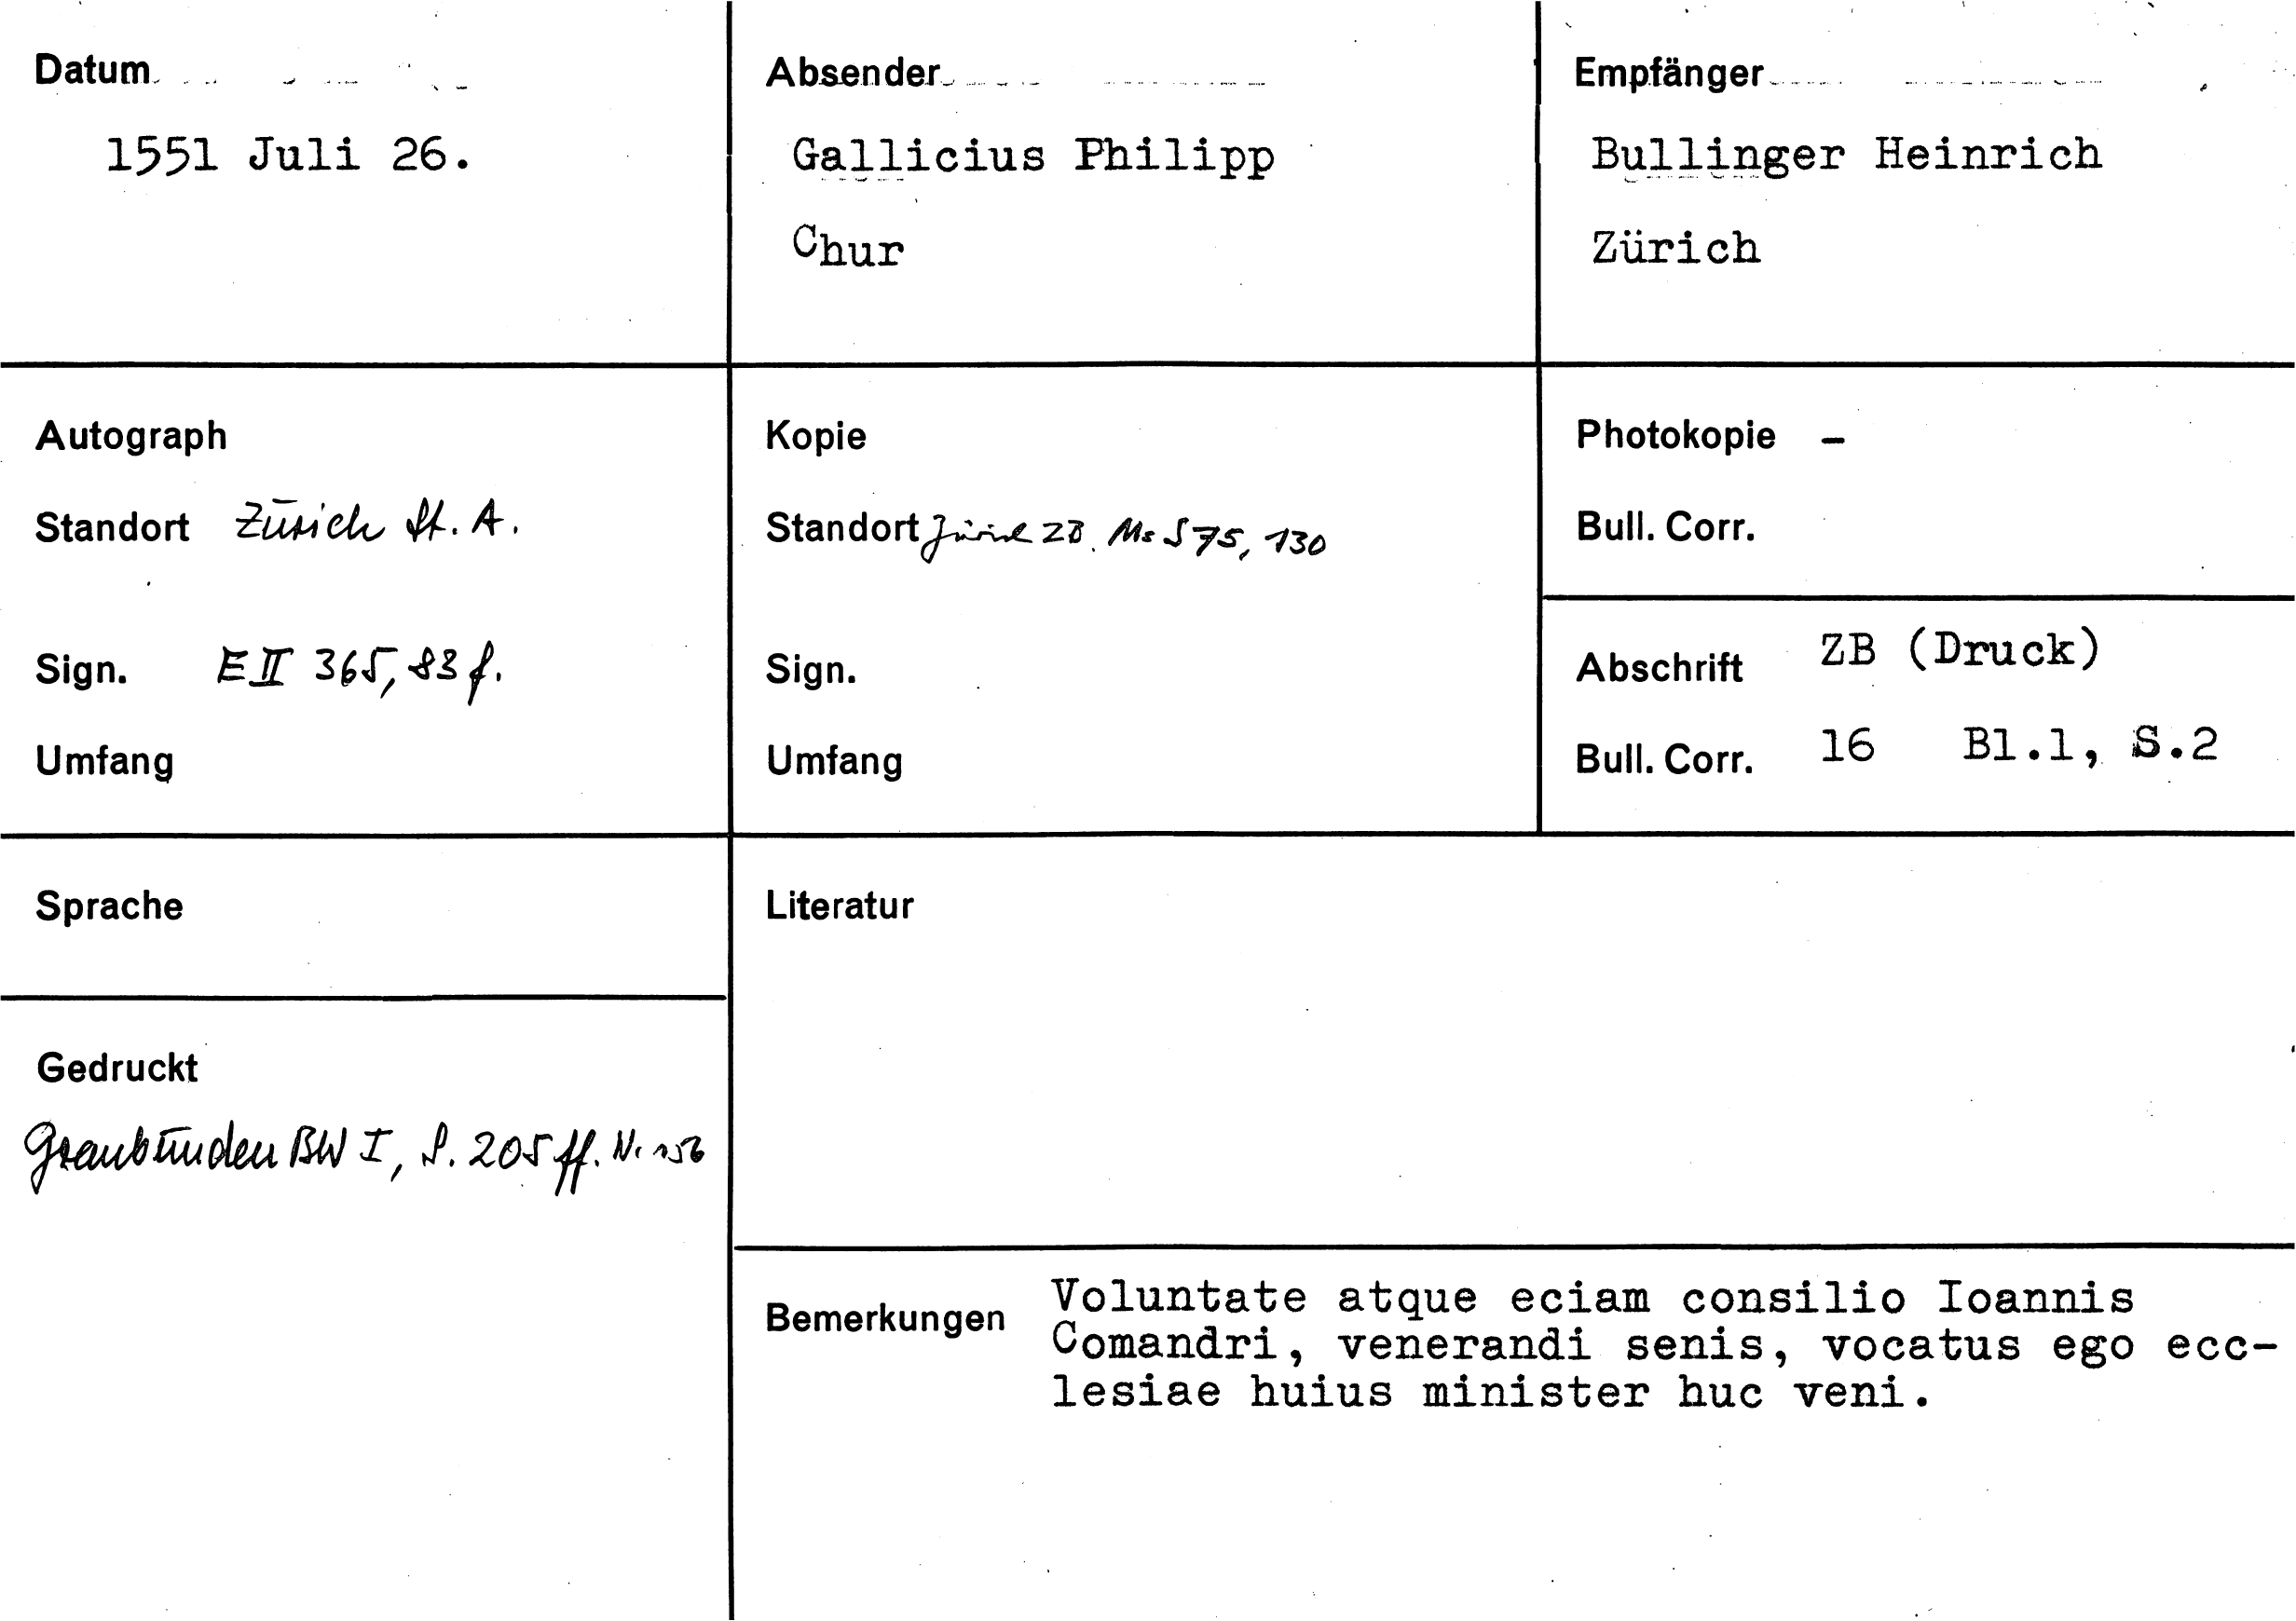 Datum
1551 Juli 26.
Absender
Gallicius Philipp
Chur
Empfänger
Bullinger Heinrich
Zürich
Autograph
Standort Zürich St. A.
Sign. E II 365, 83 f.
Umfang
Kopie
Standort Zürich ZB. Ms S 75, 130
Sign.
Umfang
Photokopie –
Bull. Corr.
Abschrift ZB (Druck)
Bull. Corr. 16 Bl.1, S.2
Sprache
Literatur
Gedruckt
Graubünden BW I, S. 205 ff. Nr
Bemerkungen Voluntate atque eciam consilio Ioannis
Comandri, venerandi senis, vocatus ego ecc-
lesiae huius minister huc veni.